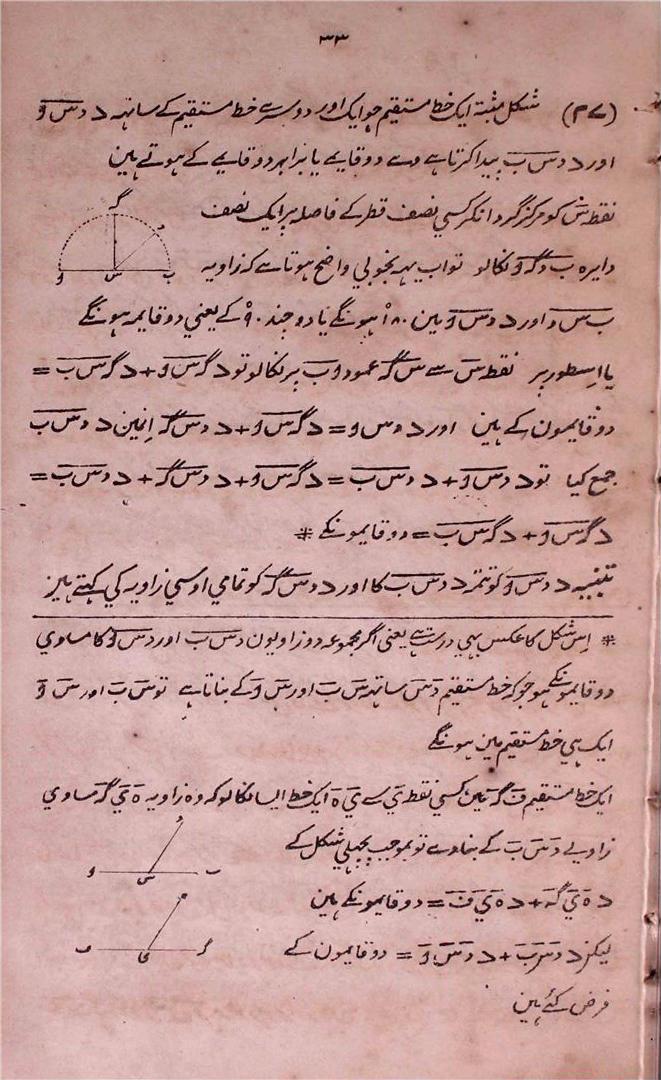 ۳۳
(۲۷) شکل مثبتہ ایک خط مستقیم جو ایک اور دوسرے خط مستقیم کے ساتہہ د دس و
اور د دس ب پیدا کرتا ہے دے دوقایمے یا برابر دوقایمے کے ہوتے ہین
نقطہ س کو مرکز گردانکر کسي نصف قطر کے فاصلہ پر ایک نصف
دایرہ ب د گہ و نکالو تو اب یہہ بخوبي واضح ہوتا ہے کہ زاویہ
ب س د اور د دس و مین ۱۸۰ْ ہونگے یا دو چند ۹۰ْ کے یعني دوقایمہ ہونگے
یا اسطور پر نقطہ س سے س گہ عمود و ب پر نکالو تو د گہ س و + د گہ س ب =
دو قایمون کے ہین اور د دس و = د گہ س و + د دس گہ اِنمین د دس ب
جمع کیا تو د دس و + د دس ب = د گہ س و + د دس گہ + د دس ب =
د گہ س و + د گہ س ب = دو قایمونکے *
تنبیہ د دس و کو تتمہ د دس ب کا اور د دس گہ کو تمامي اوسي زاویہ کي کہتے ہین
گہ
د
و س ب
* اِس شکل کا عکس بہي درست ہے یعني اگر مجموعہ دو زاویون دس ب اور دس و کا مساوي
دو قایمونکے ہو جو کہ خط مستقیم دس ساتہہ س ب اور س و کے بناتا ہے تو س ب اور س و
ایک ہي خط مستقیم مین ہونگے
ایک خط مستقیم ف گہ مین کسي نقطہ ي سے ي ہ ایک خط ایسا نکالو کہ وہ زاویہ ہ ي گہ مساوي
زاویے دس ب کے بناوے تو بموجب پچہلي شکل کے
د ہ ي گہ + د ہ ي ف = دو قایمونکے ہین
لیکن د دس ب + د دس و = دو قایمون کے
فرض کئے ہین
د
و س ب
ہ
ف ي گہ